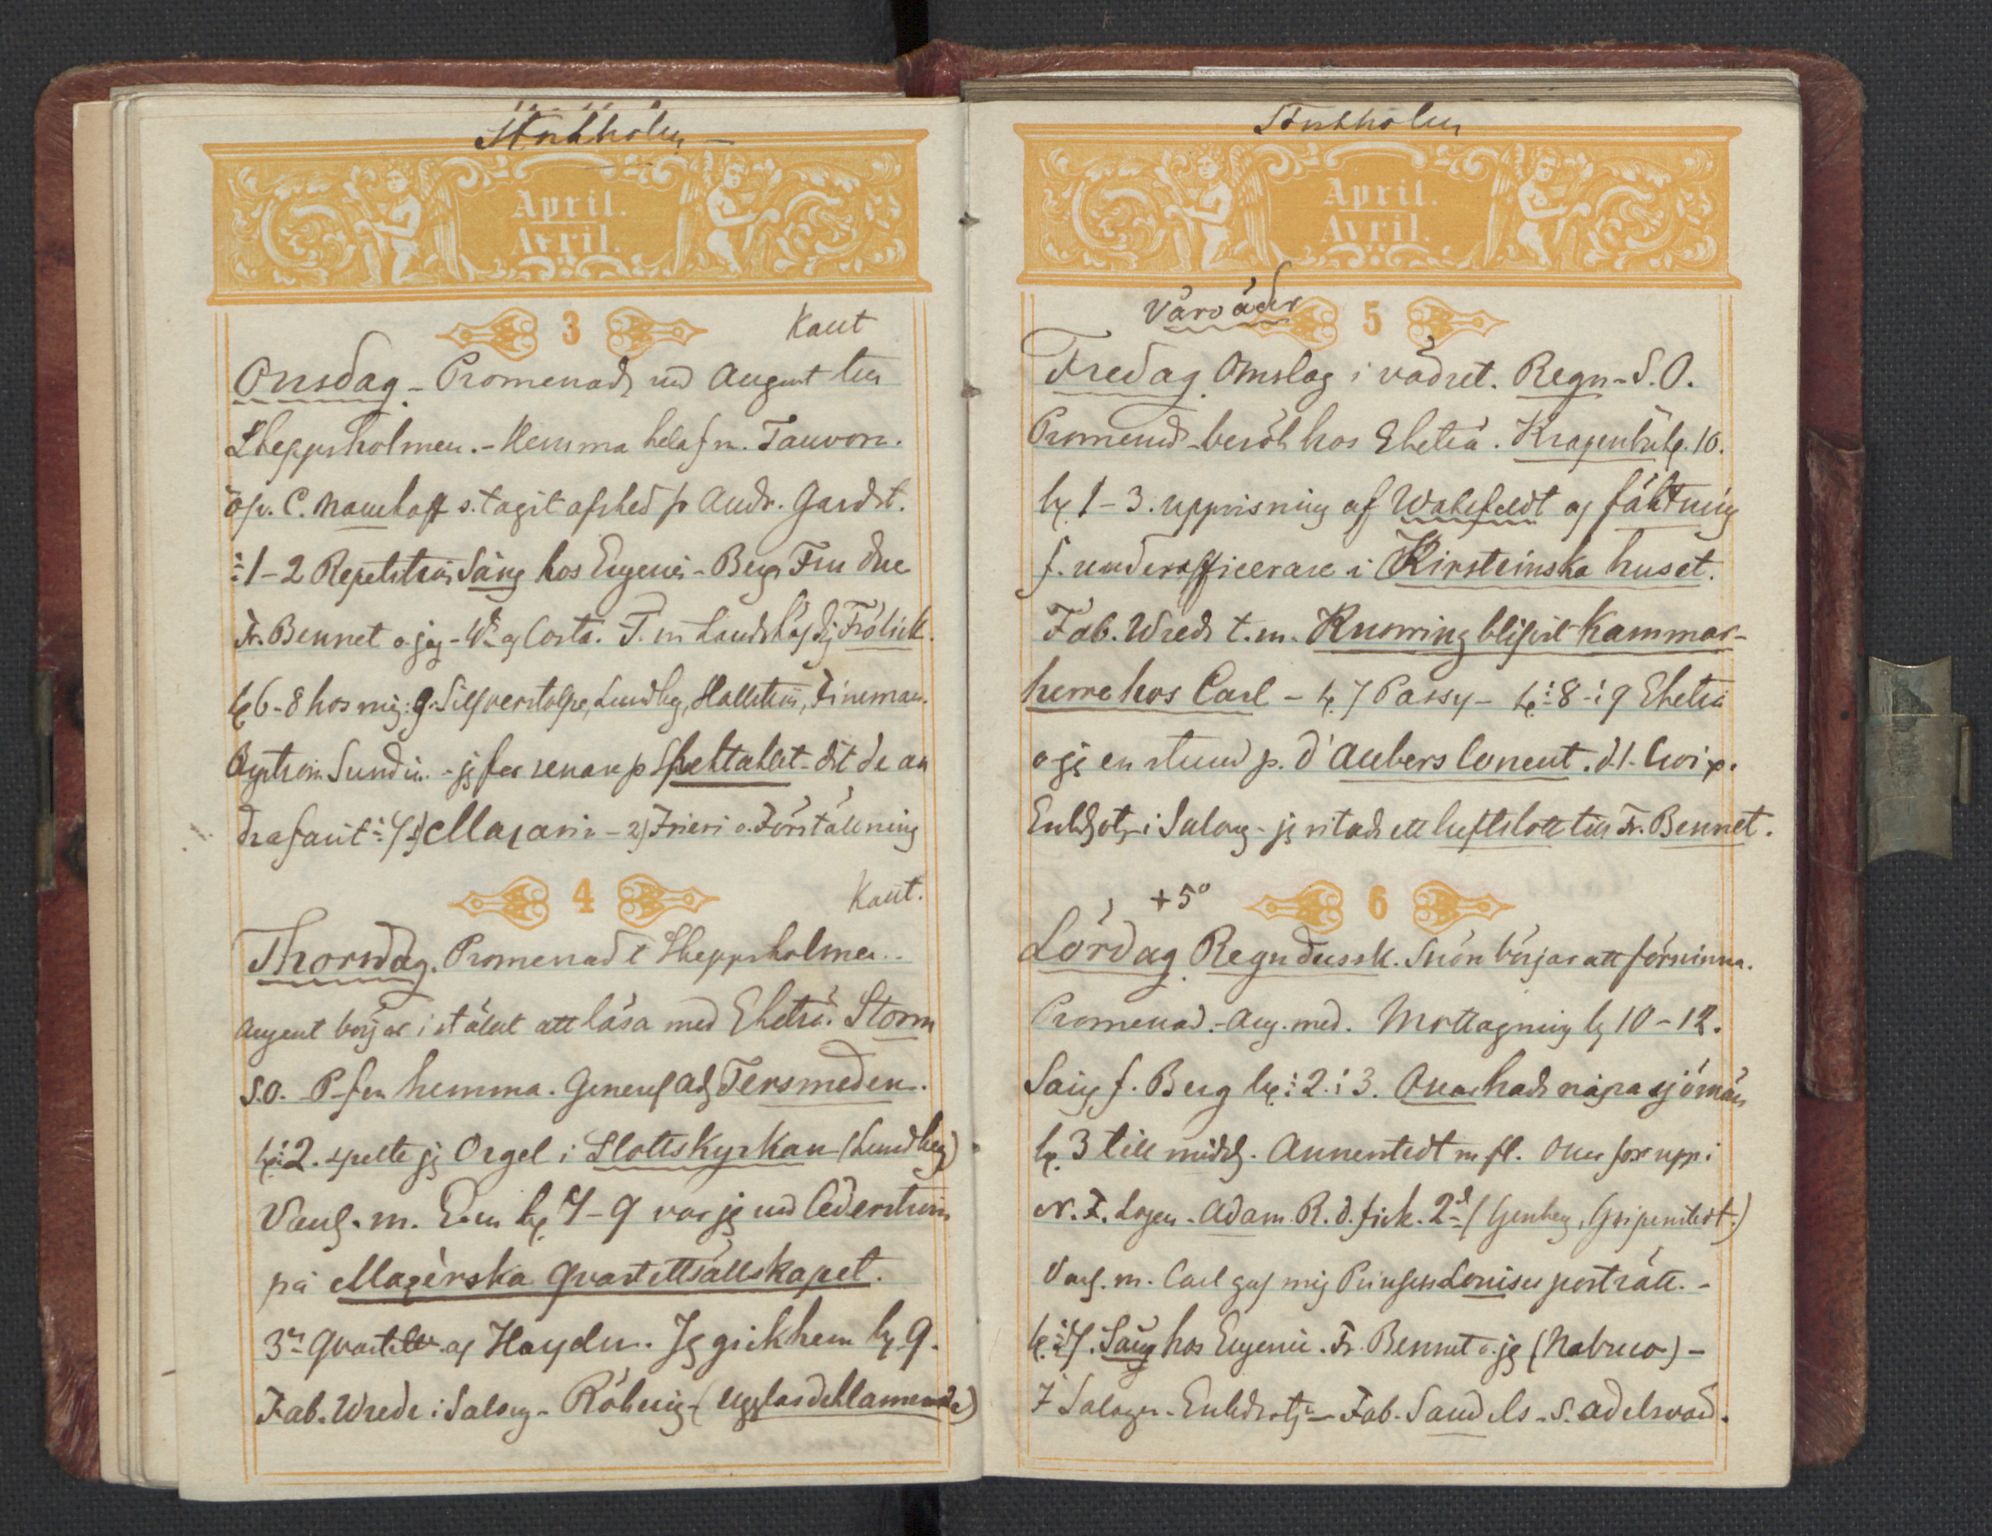 Stockholm
April.
Avril.
3
Kallt
Onsdag. Promenade med August till
Skeppsholmen. - Hemma hela f m. Tauvon.
öfv. C. Nauckhoff s. tagit afsked fr Andr. Gardet.
½1-2 Repetition Sång hos Eugenie - Berg Fru Due
Fr. Bennet o. jag - af Costa. T. m Landshöfdg Frölich.
kl 6-8 hos mig: Silfverstolpe, Lundbg, Hallström, Fineman.
Byström Sundin. - jg for senare p Spektaklet - dit de an
dra farit ½7 1) Mazarin - 2) Frieri o. Förställning
4
Kallt.
Thorsdag. Promenad t Skeppsholmen.
August börjar i stället att läsa med Eheträ. Storm
S.O. P. fm hemma. General Adj Tersmeden.
kl ½2. spelte jg Orgel i Slottskyrkan (Lundbg)
Vanl. m. Den kl 7-9 var jg med Cederström
på Mazèrska Qvartettsällskapet.
3ne Qvartetter af Haydn. Jg gick hem kl 9.
Fab. Wrede i Salong - Röhrig (Ugglas deklamerade)
Stockholm
April.
Avril.
Vårväder
5
Fredag. Omslag i vädret. Regn - S.O.
Promenad - besök hos Eheträ. kl. 10.
kl 1-3. uppvisning af Wahlfeldt af fäktning
f. underofficerare i Kirsteinska huset.
Fab. Wrede t. m. Knorring blifvit Kammar-
herre hos Carl - kl 7 Passy - kl ½8-½9 Eheträ
o jg en stund p. d'Auberts Concert. d. l. Croix.
i Salong - jg ritade ett luftslott till Fr. Bennet.
+5°
6
Lördag. Regndussk. Snön börjar att försvinna.
Promenad. - Aug. med. Mottagning kl 10-12.
Sång f. Berg kl ½2-½3. Oscar hade några sjömän
kl. 3 till middg. Annerstedt m fl. Oscar for upp i
N. I. Logen. Adam R. d. fick 2d (Genberg, Gripenstedt.)
Vanl. m. Carl gaf mig Prinsess Louises porträtt. -
kl. ½7. Sång hos Eugenie. Fr. Bennet o. jg (Nabuco) -
I Salongen. - Fab. Sandels - S. Adelsvärd.